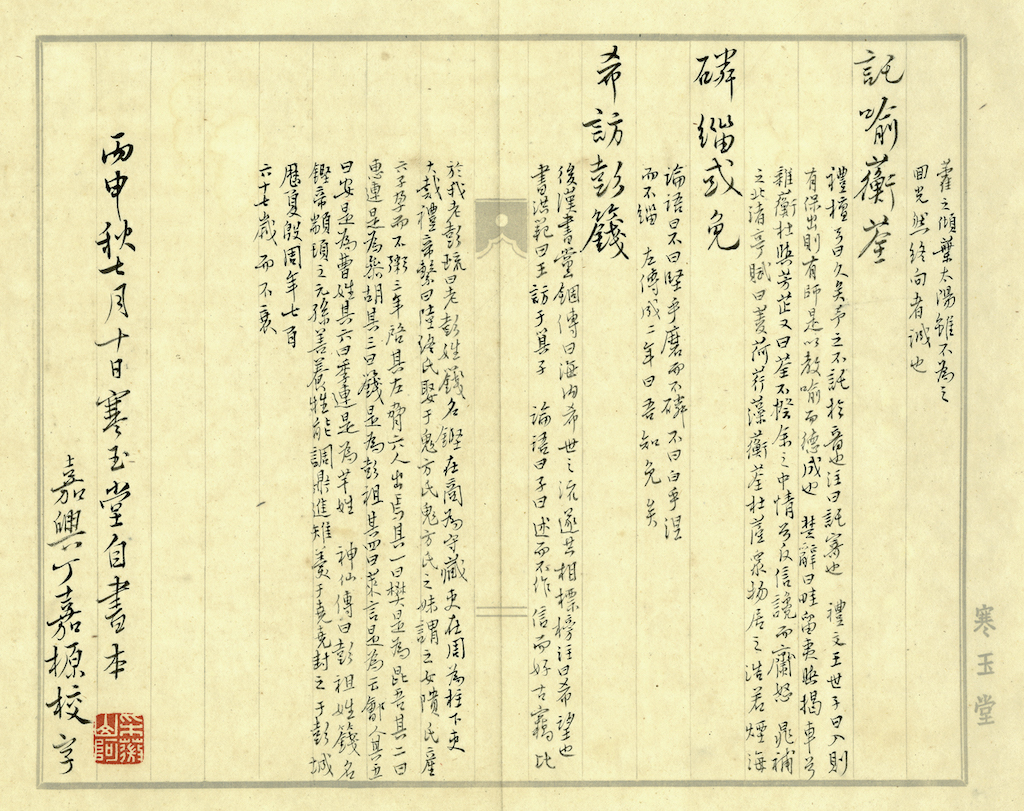 藿之傾葉太陽雖不為之
回光然終向者誠也
託喻蘅荃
禮檀弓曰久矣予之不託於音也注曰託寄也　禮文王世子曰入則
有保出則有師是以教喻而德成也　楚辭曰畦留夷與揭車兮
雜蘅杜與芳芷又曰荃不詧余之中情兮反信讒而齌怒　晁補
之北渚亭賦曰菱荷荇藻蘅荃杜蘺眾物居之浩若煙海
磷緇或免
論語曰不曰堅乎磨而不磷不曰白乎涅
而不緇　左傳成二年曰吾知免矣
希訪彭籛
後漢書黨錮傳曰海內希世之流遂共相標榜注曰希望也
書洪範曰王訪于箕子　論語曰子曰述而不作信而好古竊比
於我老彭疏曰老彭姓籛名鏗在商為守藏吏在周為柱下吏
大戴禮帝繫曰陸終氏娶于鬼方氏鬼方氏之妹謂之女隤氏產
六子孕而不粥三年啓其左脅六人出焉其一曰樊是為昆吾其二曰
惠連是為參胡其三曰籛是為彭祖其四曰萊言是為云鄶人其五
曰安是為曹姓其六曰季連是為羋姓　神仙傳曰彭祖姓籛名
鏗帝顓頊之元孫善養性能調鼎進雉羹于堯堯封之于彭城
歷夏殷周年七百
六十七歲而不衰
丙申秋七月十日寒玉堂自書本
嘉興丁嘉㮣校字
寒玉堂